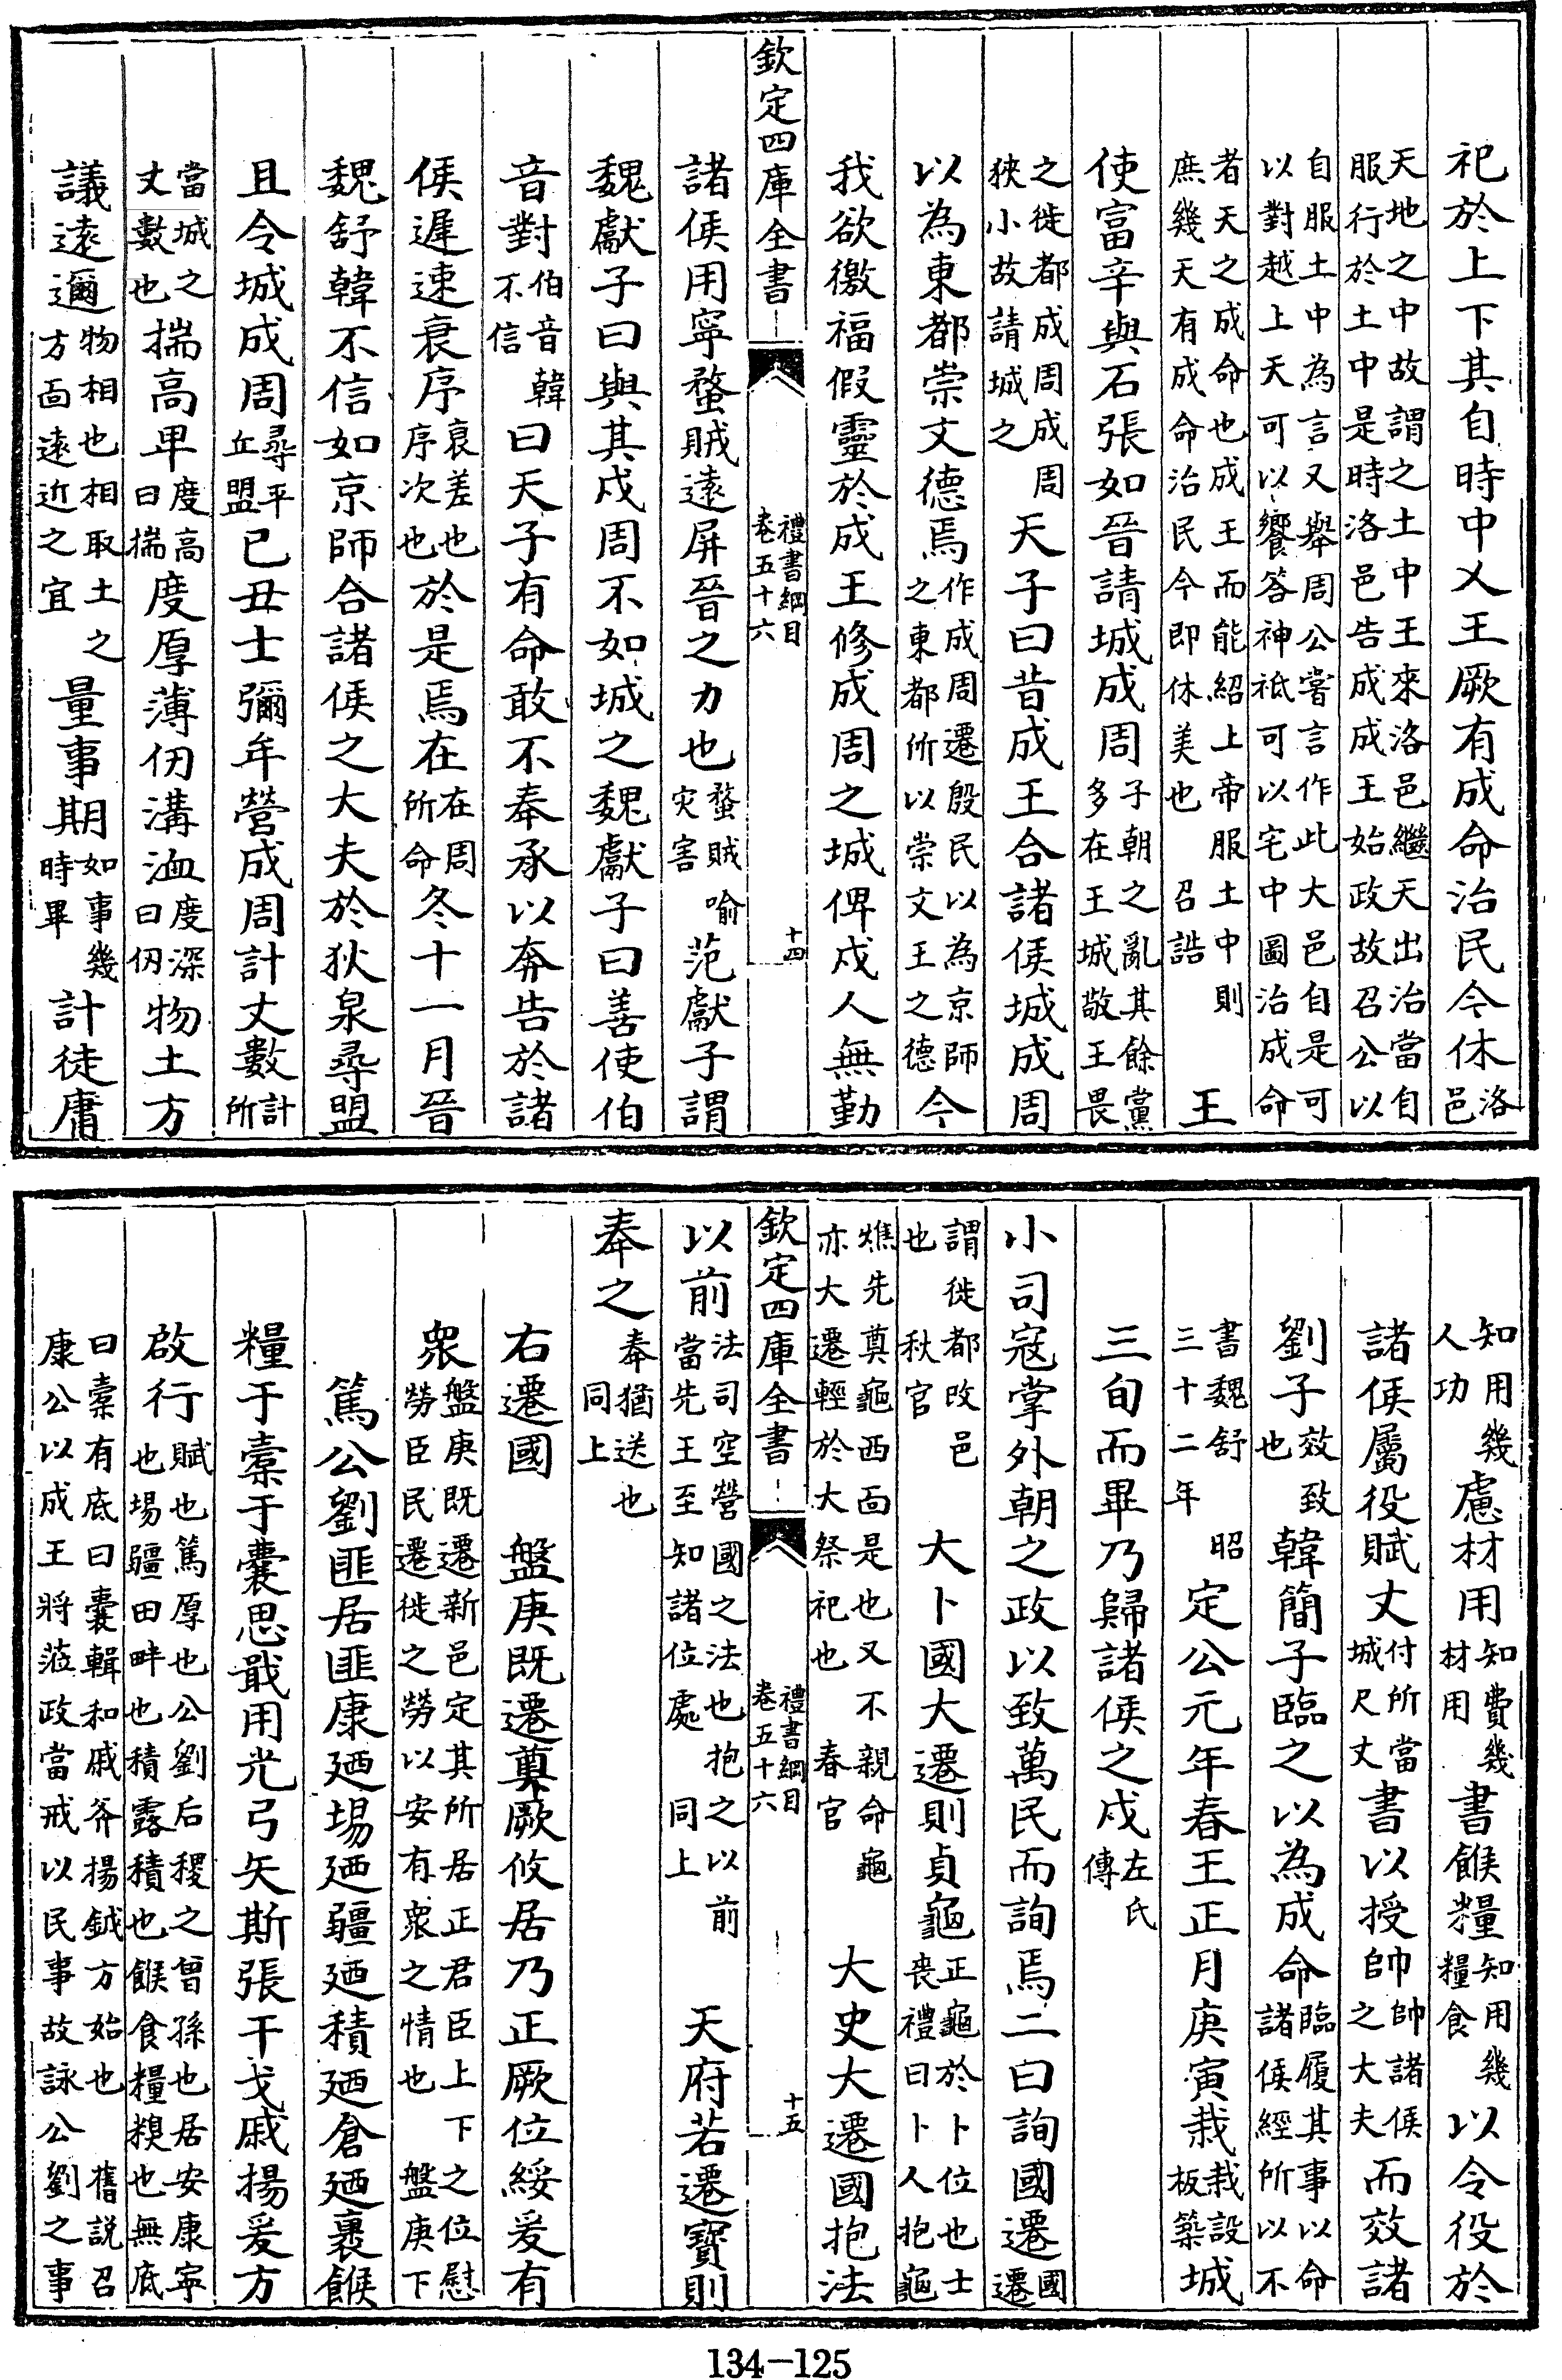 祀於上下其自時中乂王厥有成命治民今休洛邑
天地之中故謂之土中王來洛邑繼天出治當自
服行於土中是時洛邑告成成王始政故召公以
自服土中為言又舉周公嘗言作此大邑自是可
以對越上天可以饗答神祇可以宅中圖治成命
者天之成命也成王而能紹上帝服土中則
庶幾天有成命治民今即休美也 召誥 王
使富辛與石張如晉請城成周子朝之亂其餘黨多在王城敬王畏
之徙都成周成周狹小故請城之 天子曰昔成王合諸侯城成周
以為東都崇文德焉作成周遷殷民以為京師之東都所以崇文王之德今
我欲徼福假靈於成王修成周之城俾戍人無勤
欽定四庫全書 禮書綱目 卷五十六 十四
諸侯用寧蝥賊遠屏晉之力也蝥賊喻災害范獻子謂
魏獻子曰與其戍周不如城之魏獻子曰善使伯
音對伯音韓不信曰天子有命敢不奉承以奔告於諸
侯遲速衰序衰差也序次也於是焉在在周所命冬十一月晉
魏舒韓不信如京師合諸侯之大夫於狄泉尋盟
且令城成周尋平丘盟已丑士彌牟營成周計丈數計所
當城之丈數也揣高卑度高曰揣度厚薄仞溝洫度深曰仞物土方
議遠邇物相也相取土之方面遠近之宜量事期如事幾時畢計徒庸
知用幾人功慮材用知費幾材用書餱糧知用幾糧食以令役於
諸侯屬役賦丈付所當城尺丈書以授帥帥諸侯之大夫而效諸
劉子效致也韓簡子臨之以為成命臨履其事以命諸侯經所以不
書魏舒三十二年 昭 定公元年春王正月庚寅栽栽設板築城
三旬而畢乃歸諸侯之戍左氏傳
小司寇掌外朝之政以致萬民而詢焉二曰詢國遷國遷
謂徙都改邑也 秋官 大卜國大遷則貞龜正龜於卜位也士喪禮曰卜人抱龜
燋先奠龜西面是也又不親命龜亦大遷輕於大祭祀也 春官 大史大遷國抱法
欽定四庫全書 禮書綱目 卷五十六 十五
以前法司空營國之法也抱之以前當先王至知諸位處 同上 天府若遷寶則
奉之奉猶送也 同上
右遷國 盤庚既遷奠厥攸居乃正厥位綏爰有
衆盤庚既遷新邑定其所居正君臣上下之位慰勞臣民遷徙之勞以安有衆之情也 盤庚下
篤公劉匪居匪康廼埸廼疆廼積廼倉廼裹餱
糧于橐于囊思戢用光弓矢斯張干戈戚揚爰方
啟行賦也篤厚也公劉后稷之曾孫也居安康寧也埸疆田畔也積露積也餱食糧糗也無底
曰橐有底曰囊輯和戚斧揚鉞方始也 舊説召康公以成王將蒞政當戒以民事故詠公劉之事
134-125